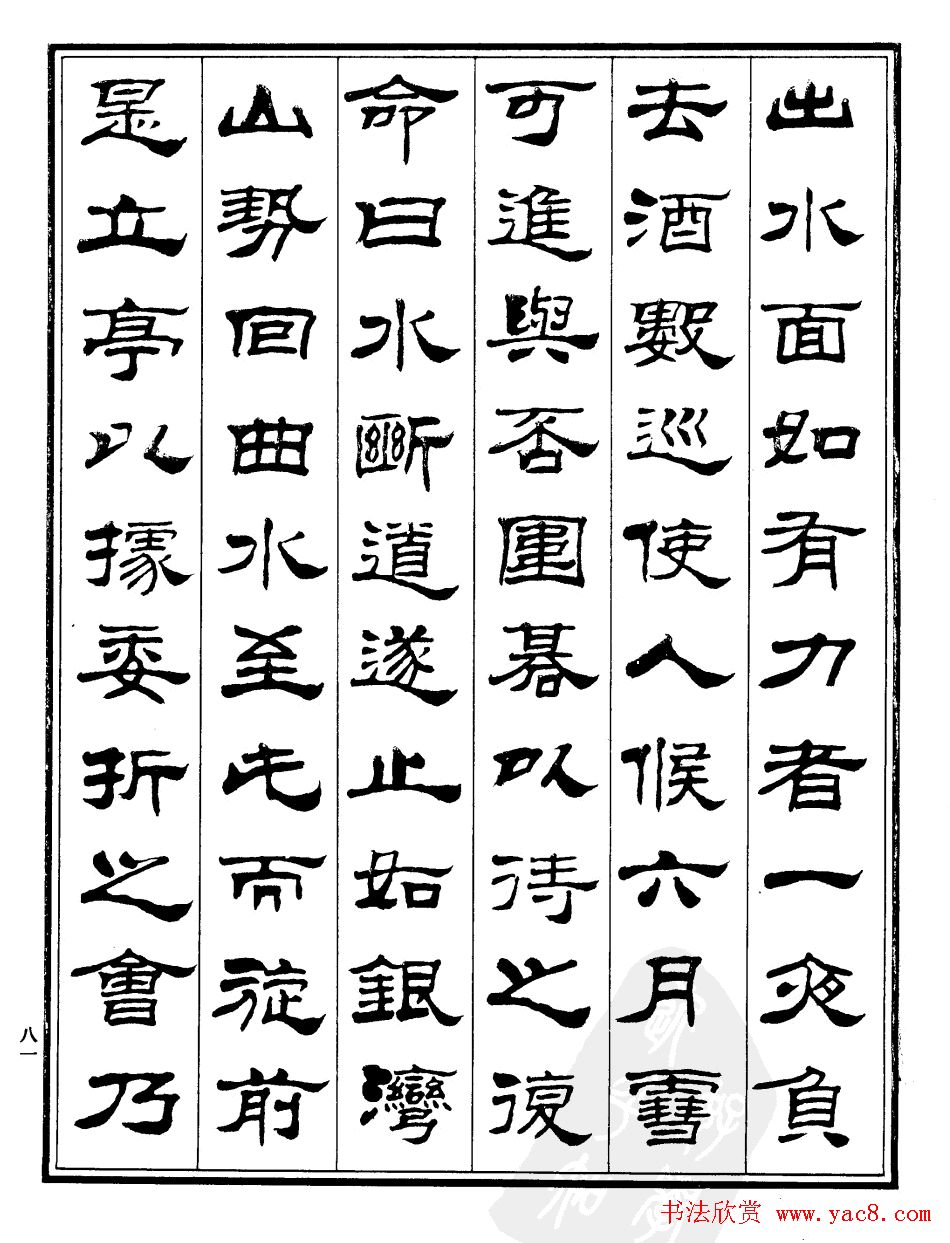 出水面如有力者一夾負
去酒數巡使人候六月雪
可進與否圍碁以待之復
命曰水斷道遂止如銀灣
山勢回曲水至此而旋前
是立亭以據委折之會乃
八一
书法欣赏 www.yac8.com